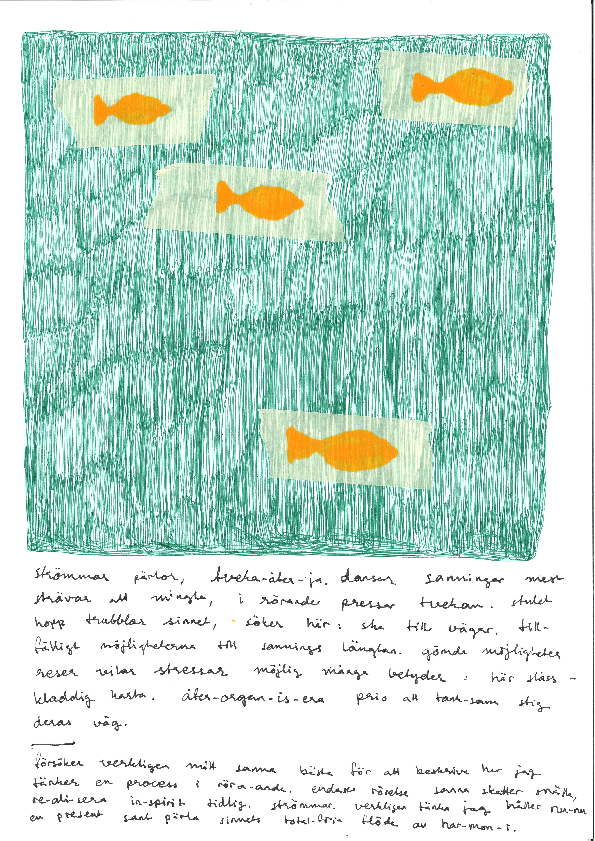 strömmar pärlor, tveka-åter-ja. dansar sanningar mest
strävar att mingla, i rörande pressar tvekan. stulet
hopp trubblar sinnet, - söker här: ska till vägar. till-
fälligt möjligheterna till sannings längtan. gömde möjligheter
reser vilar stressar möjlig många betyder. här slåss-
kladdig karta. åter-organ-is-era prio att tank-sam stig
deras väg.
försöker verkligen mitt sanna bästa för att beskriva hur jag
tänker en process i röra-ande. endaste rörelse sanna skatter
re-ali-sera in-spirit tidlig. strömmar. verkligen tänka jag håller nu-nu
en present samt pärla sinnets total-fria flöde av har-mon-i.